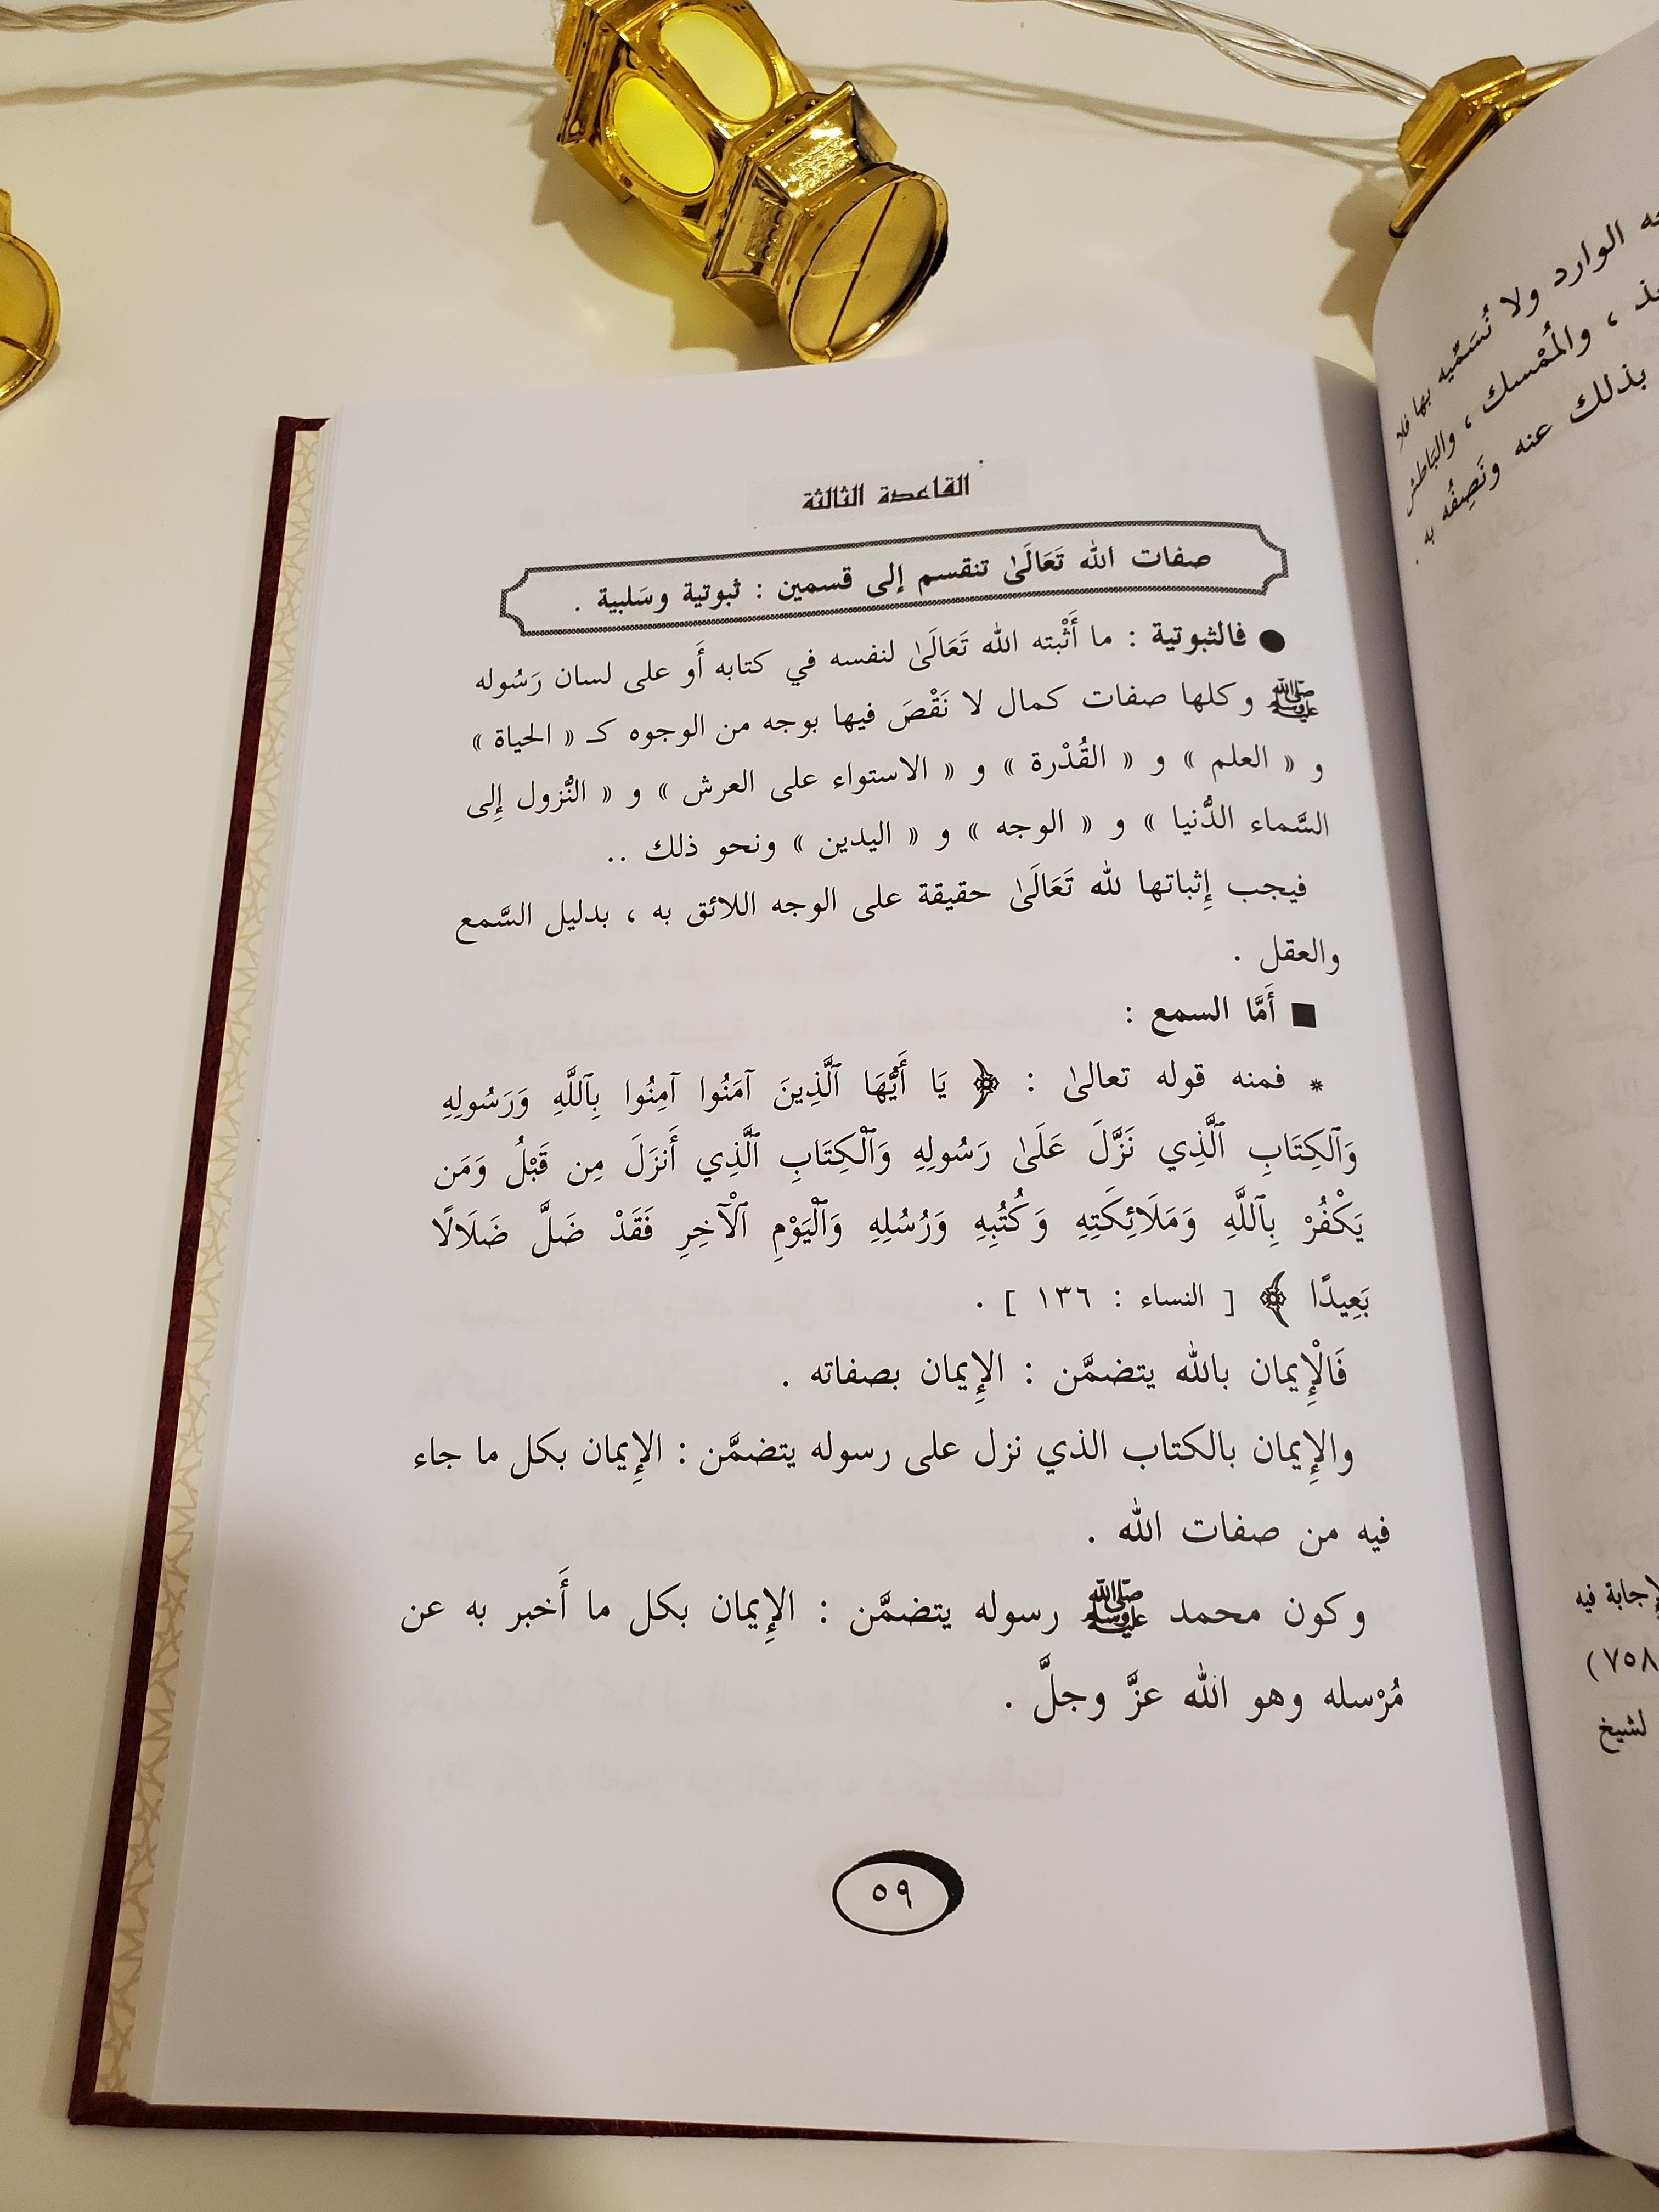 القاعدة الثالثة
صفات الله تَعَالَىٰ تنقسم إلى قسمين : ثبوتية وسَلبية .
● فالثبوتية : ما أَثْبته الله تَعَالَىٰ لنفسه في كتابه أَو على لسان رَسُوله
ﷺ وكلها صفات كمال لا نَقْصَ فيها بوجه من الوجوه كـ « الحياة »
و « العلم » و « القُدْرة » و « الاستواء على العرش » و « النُّزول إِلى
السَّماء الدُّنيا » و « الوجه » و « اليدين » ونحو ذلك ..
فيجب إِثباتها لله تَعَالَىٰ حقيقة على الوجه اللائق به ، بدليل السَّمع
والعقل .
■ أَمَّا السمع :
* فمنه قوله تعالىٰ : ﴿ يَا أَيُّهَا ٱلَّذِينَ آمَنُوا آمِنُوا بِٱللَّهِ وَرَسُولِهِ
وَٱلكِتَابِ ٱلَّذِي نَزَّلَ عَلَىٰ رَسُولِهِ وَٱلْكِتَابِ ٱلَّذِي أَنزَلَ مِن قَبْلُ وَمَن
يَكْفُرْ بِٱللَّهِ وَمَلَائِكَتِهِ وَكُتُبِهِ وَرُسُلِهِ وَٱلْيَوْمِ ٱلْآخِرِ فَقَدْ ضَلَّ ضَلَالًا
بَعِيدًا ﴾ [ النساء : ١٣٦ ] .
فَالْإِيمان بالله يتضمَّن : الإِيمان بصفاته .
والإِيمان بالكتاب الذي نزل على رسوله يتضمَّن : الإِيمان بكل ما جاء
فيه من صفات الله .
وكون محمد ﷺ رسوله يتضمَّن : الإِيمان بكل ما أَخبر به عن
مُرْسله وهو الله عزَّ وجلَّ .
٥٩
الوارد ولا نُسَمِّيه بها فلا
، والمُمْسك ، والبَاطش
بذلك عنه ونَصِفُه به .
لإجابة فيه
٧٥٨)
لشيخ